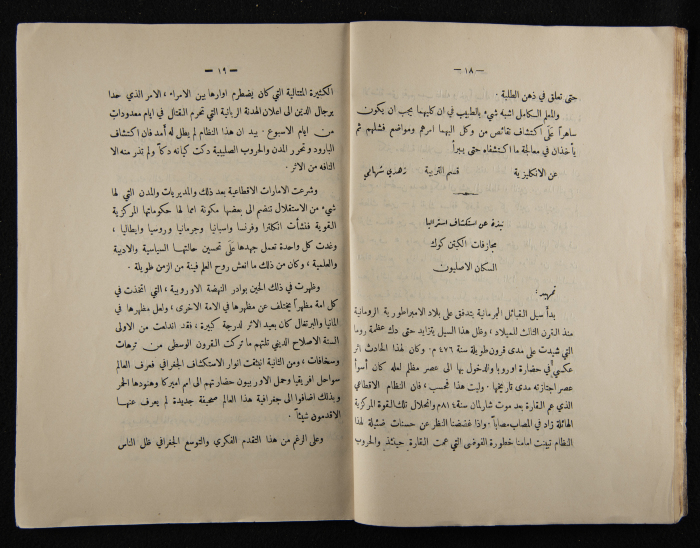 — ١٨ —
حتى تعلق في ذهن الطلبة .
والمعلم الكامل اشبه شيء بالطبيب في ان كليهما يجب ان يكون
ساهراً على اكتشاف نقائص من وكل اليهما امرهم ومواضع فشلهم ثم
يأخذان في معالجة ما اكتشفاه حتى يبرأ
عن الانكليزية قسم التربية زهدي شهابي
نبذة عن استكشاف استراليا
مجازفات الكبتن كوك
السكان الاصليون
تمهيد :
بدأ سيل القبائل الجرمانية يتدفق على بلاد الامبراطورية الرومانية
منذ القرن الثالث للميلاد ، وظل هذا السيل يتزايد حتى دك عظمة روما
التي شيدت على مدى قرون طويلة سنة ٤٧٦ م . وكان لهذا الحادث اثر
عكسي في حضارة اوروبا والدخول بها الى عصر مظلم لعله كان أسوأ
عصر اجتازته مدى تاريخها . وليت هذا فحسب ، فان النظام الاقطاعي
الذي عم القارة بعد موت شارلمان سنة ٨١٤ م وانحلال تلك القوة المركزية
الهائلة زاد في المصاب مصاباً . واذا غضضنا النظر عن حسنات ضئيلة لهذا
النظام تبينت امامنا خطورة الفوضى التي عمت القارة حينئذ والحروب
— ١٩ —
الكثيرة المتتالية التي كان يضطرم اوارها بين الامراء ، الامر الذي حدا
برجال الدين الى اعلان الهدنة الربانية التي تحرم القتال في ايام معدودات
من ايام الاسبوع . بيد ان هذا النظام لم يطل له أمد فان اكتشاف
البارود وتحرر المدن والحروب الصليبية دكت كيانه دكاً ولم تذر منه الا
التافه من الاثر .
وشرعت الامارات الاقطاعية بعد ذلك والمديريات والمدن التي لها
شيء من الاستقلال تنضم الى بعضها مكونة امما لها حكوماتها المركزية
القوية فنشأت انكلترا وفرنسا واسبانيا وجرمانيا وروسيا وايطاليا ،
وغدت كل واحدة تعمل جهدها على تحسين حالتها السياسية والادبية
والعلمية ، وكان من ذلك ما انعش روح العلم فينة من الزمن طويلة .
وظهرت في ذلك الحين بوادر النهضة الاوروبية ، التي اتخذت في
كل امة مظهراً يختلف عن مظهرها في الامة الاخرى ، ولعل مظهرها في
المانيا والبرتغال كان بعيد الاثر لدرجة كبيرة ، فقد اندلعت من الاولى
السنة الاصلاح الديني تلتهم ما تركت القرون الوسطى من ترهات
وسخافات ، ومن الثانية انبثقت انوار الاستكشاف الجغرافي فعرف العالم
سواحل افريقيا وحمل الاوربيون حضارتهم الى امم اميركا وهنودها الحمر
وبذلك اضافوا الى جغرافية هذا العالم صحيفة جديدة لم يعرف عنها
الاقدمون شيئاً .
وعلى الرغم من هذا التقدم الفكري والتوسع الجغرافي ظل الناس